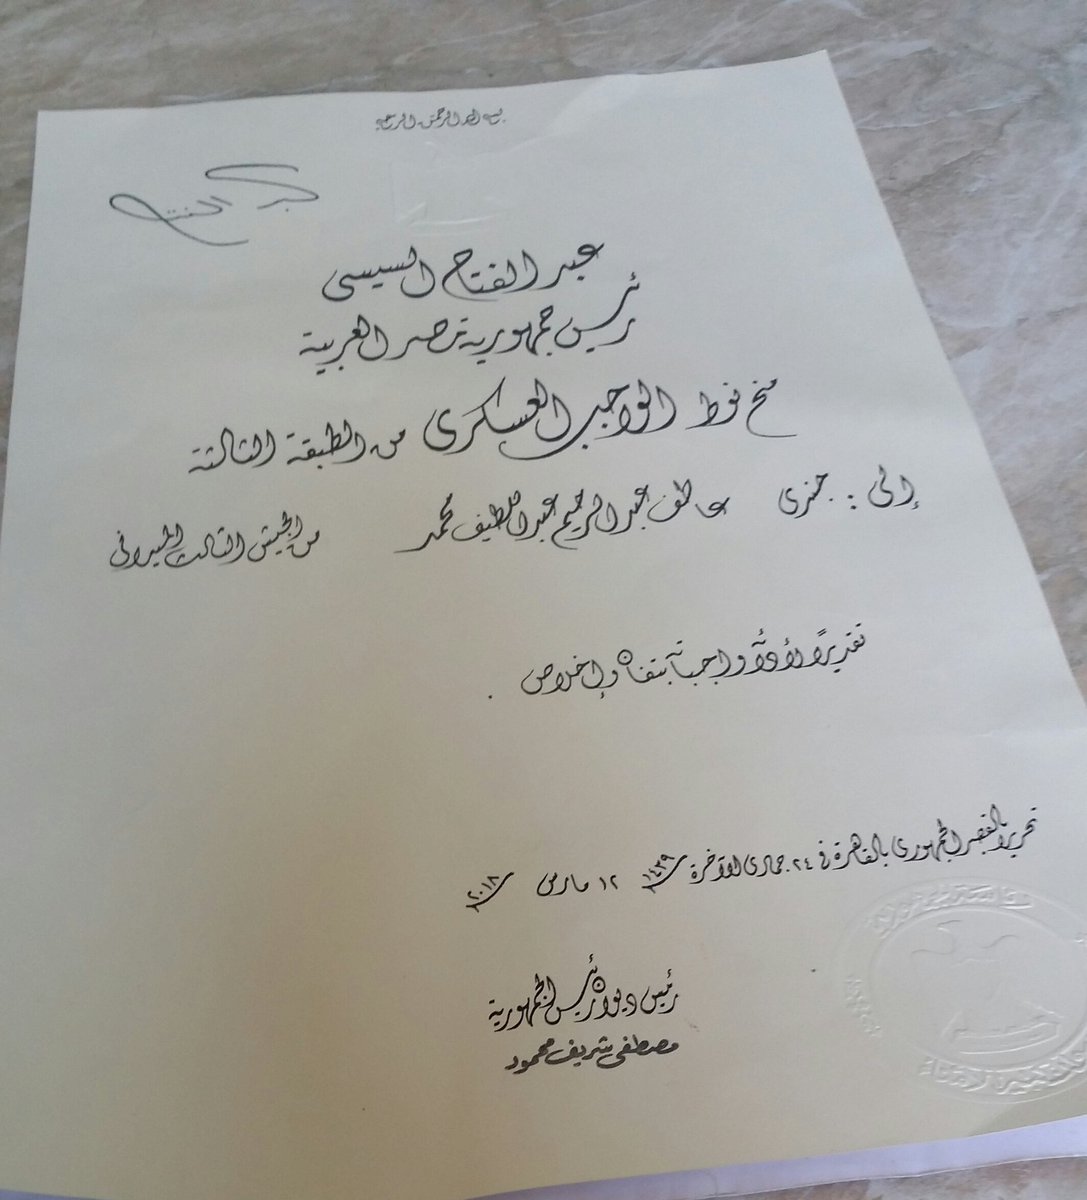 بسم الله الرحمن الرحيم
عبد الفتاح السيسى
رئيس جمهورية مصر العربية
منح نوط الواجب العسكرى من الطبقة الثالثة
إلى : جندى عاطف عبد الرحيم عبد اللطيف محمد من الجيش الثالث الميدانى
تقديرًا لأدائه واجباته بتفان وإخلاص .
تحريرًا بالقصر الجمهورى بالقاهرة فى ٢٤ جمادى الآخرة ١٤٣٩ ١٢ مارس ٢٠١٨
رئيس ديوان رئيس الجمهورية
مصطفى شريف محمود